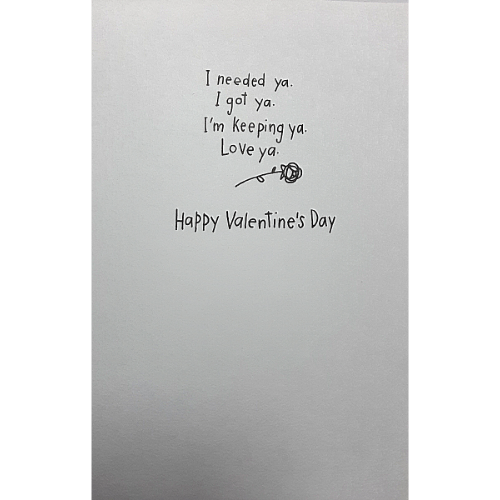 I needed ya.
I got ya.
I'm keeping ya.
Love ya.
Happy Valentine's Day